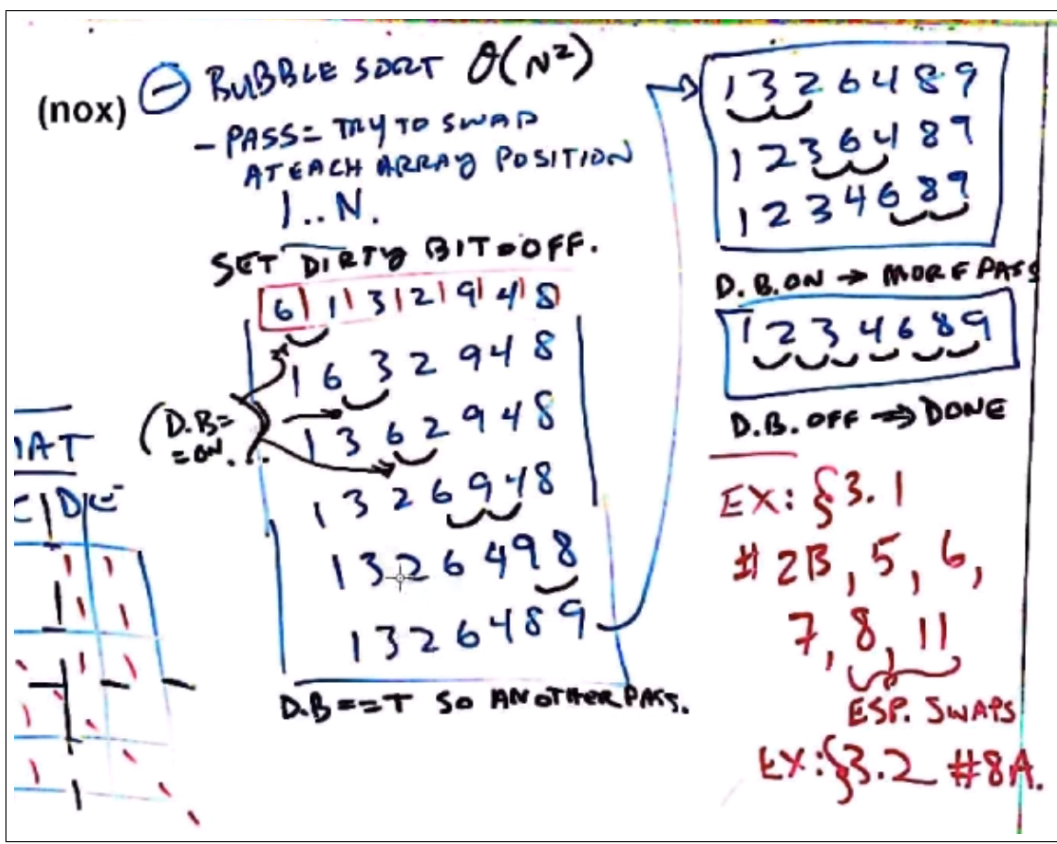 (nox) BUBBLE SORT θ(N²)
- PASS = TRY TO SWAP
AT EACH ARRAY POSITION
1..N.
SET DIRTY BIT=OFF.
6|1|3|2|9|4|8
1 6 3 2 9 4 8
(D.B=
=ON...
1 3 6 2 9 4 8
1 3 2 6 9 4 8
1 3 2 6 4 9 8
1 3 2 6 4 8 9
D.B==T SO ANOTHER PASS.
1 3 2 6 4 8 9
1 2 3 6 4 8 9
1 2 3 4 6 8 9
D.B.ON → MORE PASS
1 2 3 4 6 8 9
D.B.OFF ⇒ DONE
EX: §3.1
# 2B, 5, 6,
7, 8, 11
ESP. SWAPS
EX: §3.2 #8A.